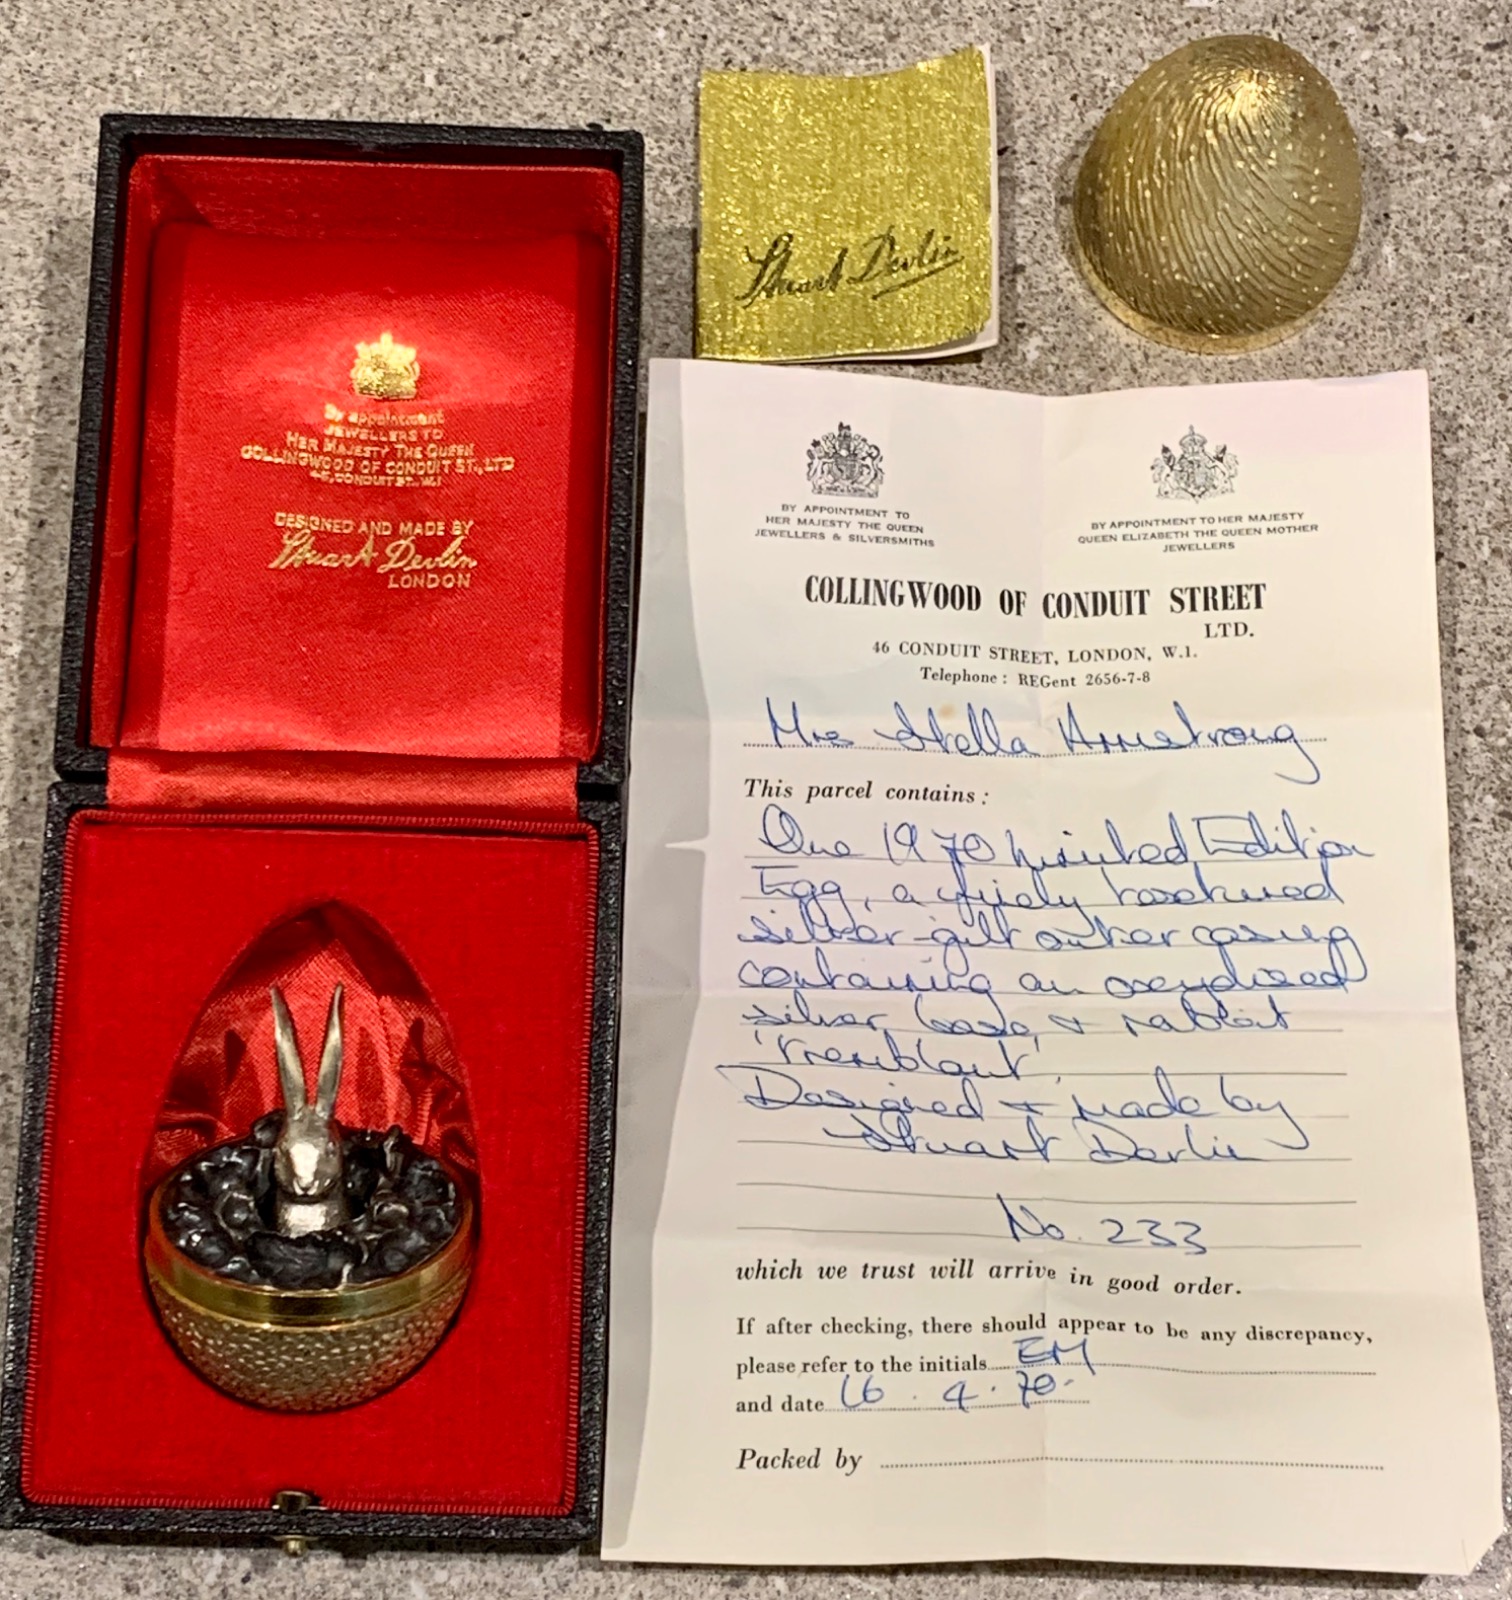 By appointment
JEWELLERS TO
HER MAJESTY THE QUEEN
COLLINGWOOD OF CONDUIT ST., LTD
46, CONDUIT ST. W.1
DESIGNED AND MADE BY
Stuart Devlin
LONDON
Stuart Devlin
BY APPOINTMENT TO
HER MAJESTY THE QUEEN
JEWELLERS & SILVERSMITHS
BY APPOINTMENT TO HER MAJESTY
QUEEN ELIZABETH THE QUEEN MOTHER
JEWELLERS
COLLINGWOOD OF CONDUIT STREET
LTD.
46 CONDUIT STREET, LONDON, W.1.
Telephone: REGent 2656-7-8
Mrs Stella Armstrong
This parcel contains:
One 1970 Limited Edition
Egg, a finely textured
silver-gilt outer casing
containing an oxydised
silver base, & rabbit
'Tremblant'.
Designed & made by
Stuart Devlin
No. 233
which we trust will arrive in good order.
If after checking, there should appear to be any discrepancy,
please refer to the initials EM
and date 16.4.70.
Packed by